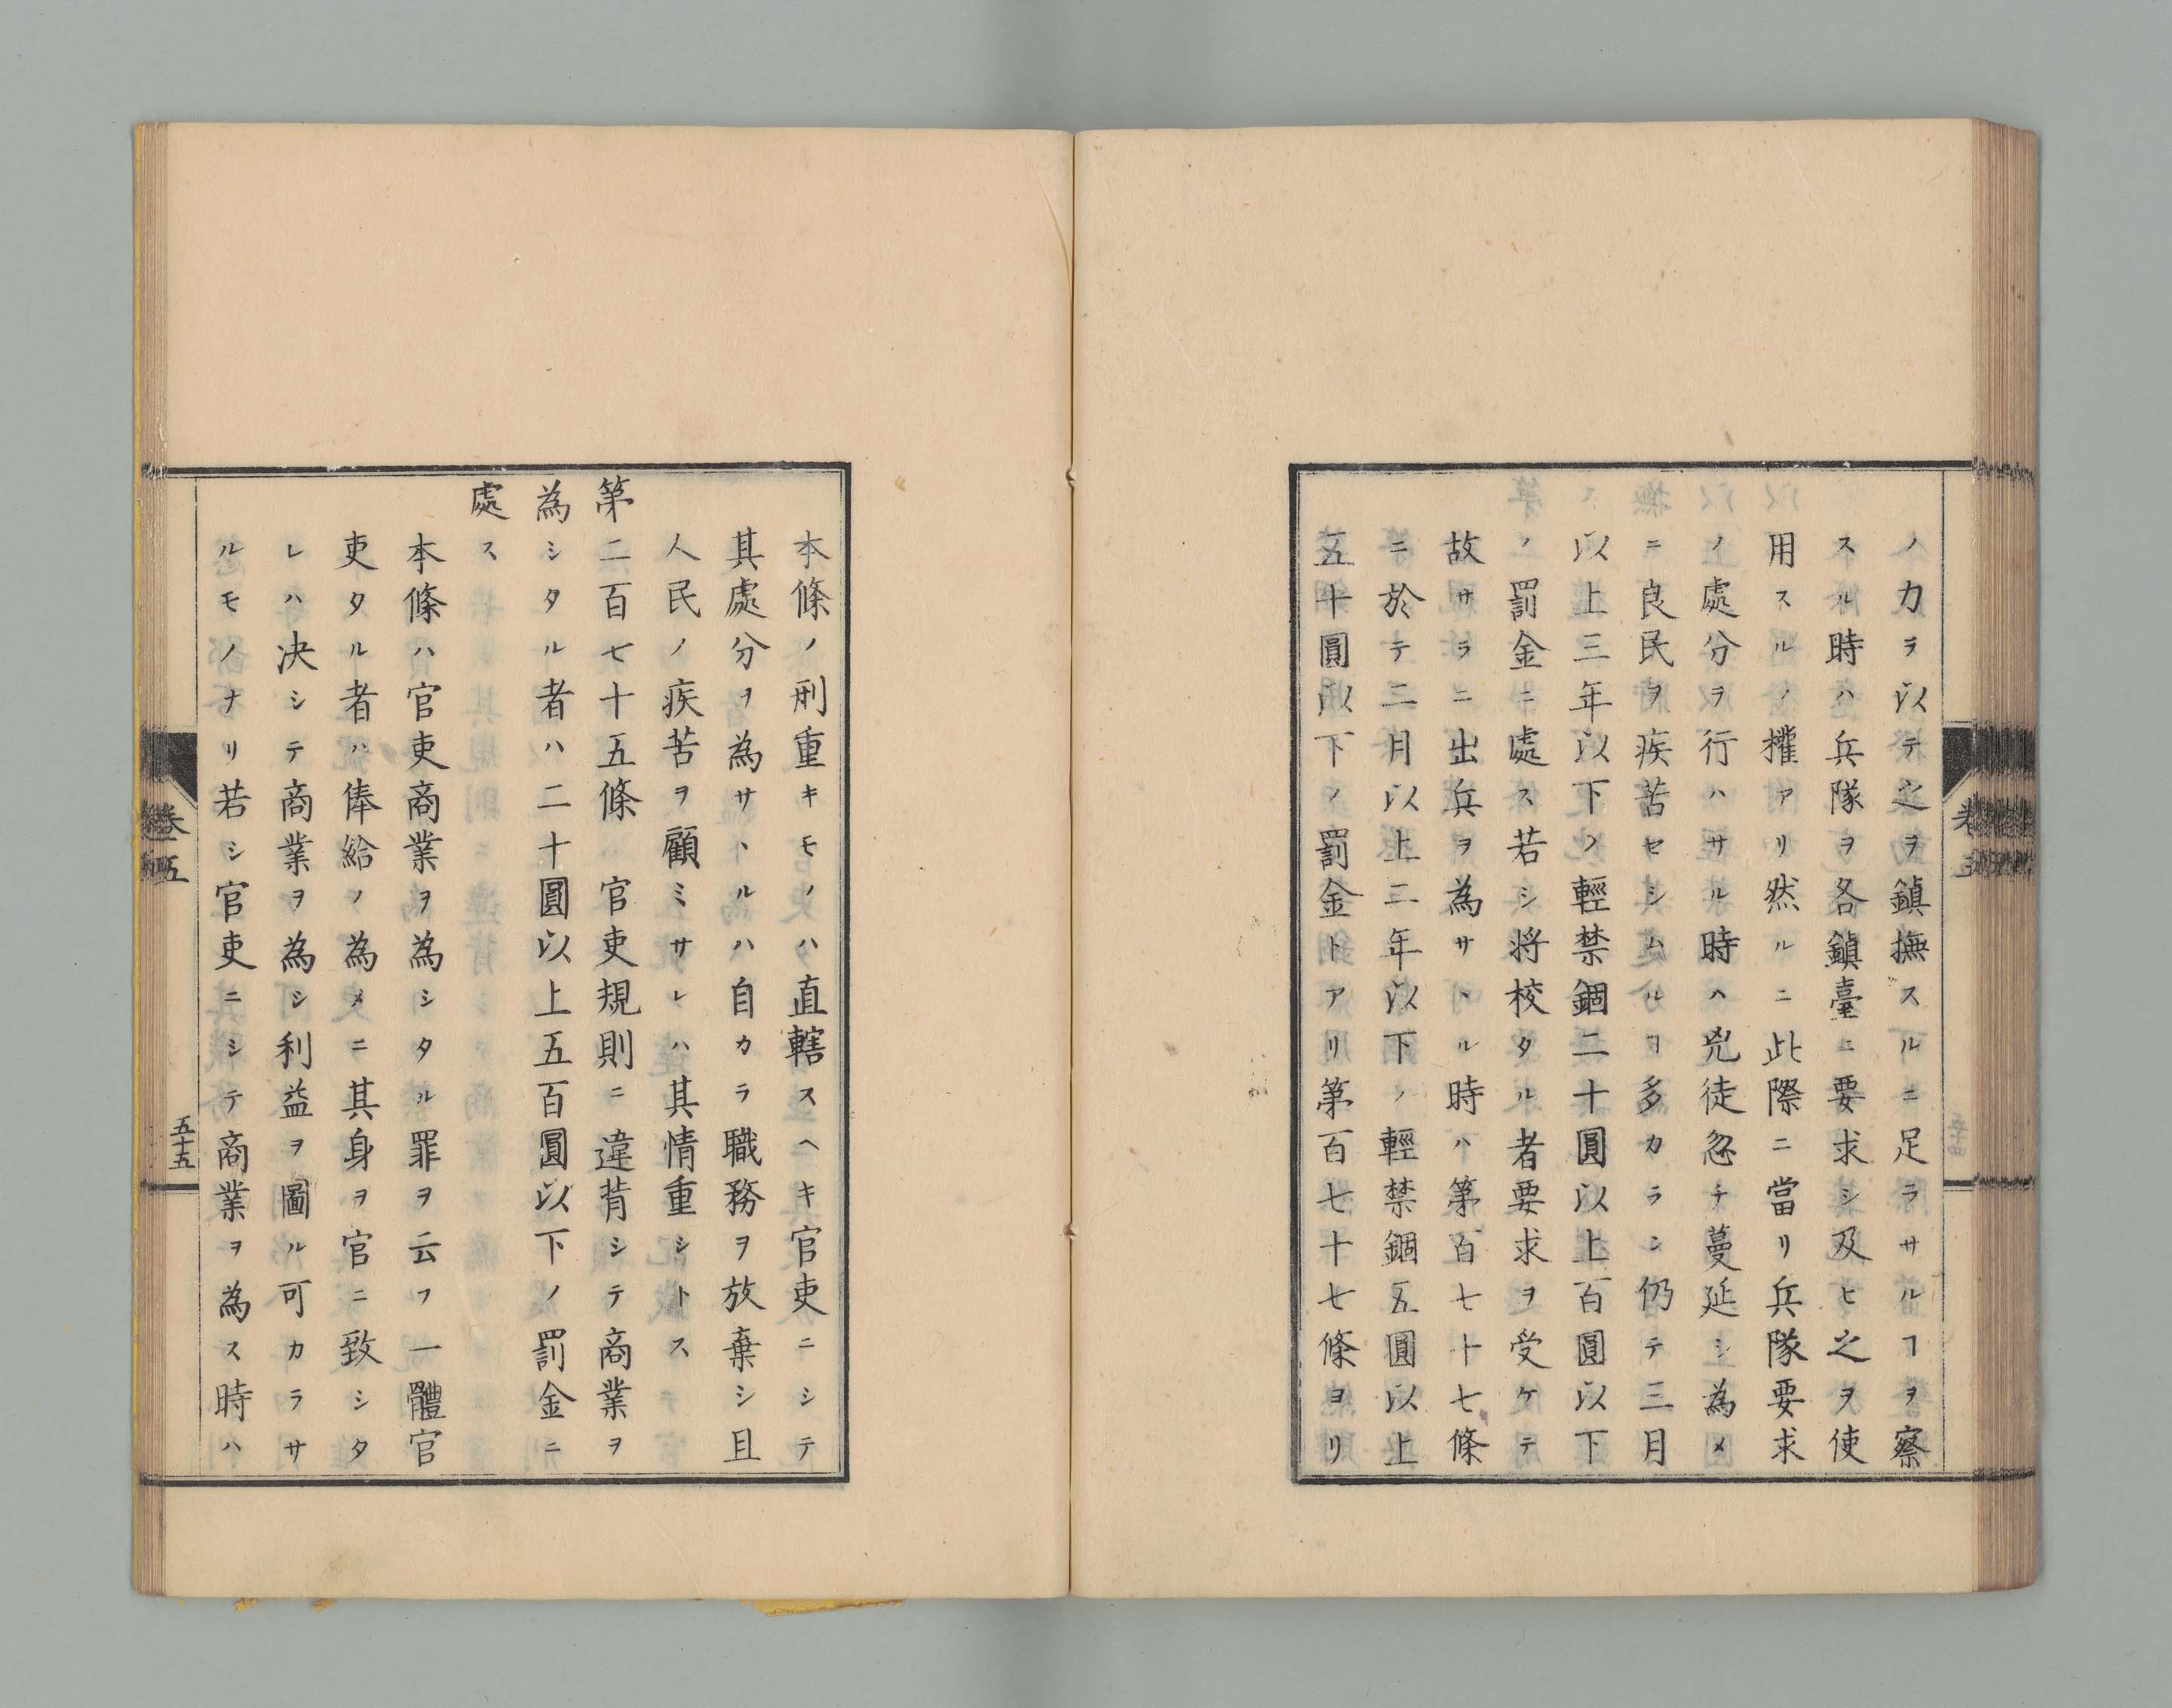 ノ力ヲ以テ之ヲ鎮撫スルニ足ラサルヿヲ察
スル時ハ兵隊ヲ各鎮臺ニ要求シ及ヒ之ヲ使
用スルノ權アリ然ルニ此際ニ當リ兵隊要求
ノ處分ヲ行ハサル時ハ兇徒忽チ蔓延シ為メ
ニ良民ヲ疾苦セシムルヿ多カラン仍テ三月
以上三年以下ノ輕禁錮二十圓以上百圓以下
ノ罰金ニ處ス若シ将校タル者要求ヲ受ケテ
故サラニ出兵ヲ為サヽル時ハ第百七十七條
ニ於テ二月以上二年以下ノ輕禁錮五圓以上
五十圓以下ノ罰金トアリ第百七十七條ヨリ
本條ノ刑重キモノハ直轄スヘキ官吏ニシテ
其處分ヲ為サヽルハ自カラ職務ヲ放棄シ且
人民ノ疾苦ヲ顧ミサレハ其情重シトス
第二百七十五條 官吏規則ニ違背シテ商業ヲ
為シタル者ハ二十圓以上五百圓以下ノ罰金ニ
處ス
本條ハ官吏商業ヲ為シタル罪ヲ云フ一體官
吏タル者ハ俸給ノ為メニ其身ヲ官ニ致シタ
レハ決シテ商業ヲ為シ利益ヲ圖ル可カラサ
ルモノナリ若シ官吏ニシテ商業ヲ為ス時ハ
卷五
五十五